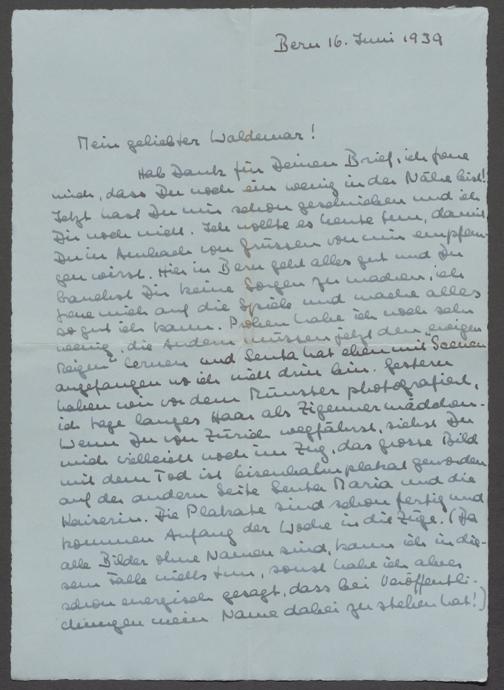 Bern 16. Juni 1939
Mein geliebter Waldemar!
Hab Dank für Deinen Brief, ich freue
mich, dass Du noch ein wenig in der Nähe bist!
Jetzt hast Du mir schon geschrieben und ich
Dir noch nicht. Ich wollte es heute tun, damit
Du in von Grüssen von mir empfan-
gen wirst. Hier in Bern geht alles gut und Du
brauchst Dir keine Sorgen zu machen, ich
freue mich auf die Spiele und mache alles
so gut ich kann. Proben habe ich noch sehr
wenig, die Andern müssen jetzt den „ewigen
Reigen" lernen und Senta hat eben mit Szenen
angefangen wo ich nicht drin bin. Gestern
haben wir vor dem Münster photografiert,
ich trage langes Haar als Zigeunermädchen.
Wenn Du von Zürich wegfährst, siehst Du
mich vielleicht noch im Zug, das grosse Bild
mit dem Tod ist Eisenbahnplakat geworden
auf der andern Seite Senta Maria und die
Kaiserin. Die Plakate sind schon fertig und
kommen Anfang der Woche in die Züge. (Da
alle Bilder ohne Namen sind, kann ich in die-
sem Falle nichts tun, sonst habe ich aber
schon energisch gesagt, dass bei Veröffentli-
chungen mein Name dabei zu stehen hat!)